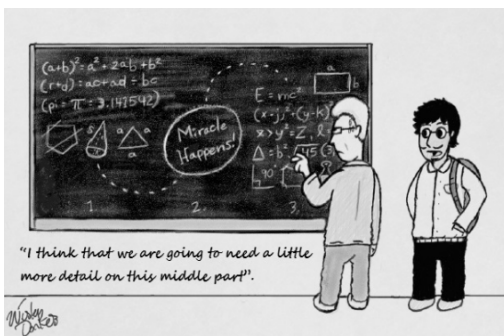 (a+b)² = a² + 2ab + b²
(r+d) = ac + ad ÷ bc
(pi = π = 3.141542)
a a
a
Miracle
Happens!
a
b
E = mc²
90°
1. 2. 3.
"I think that we are going to need a little
more detail on this middle part".